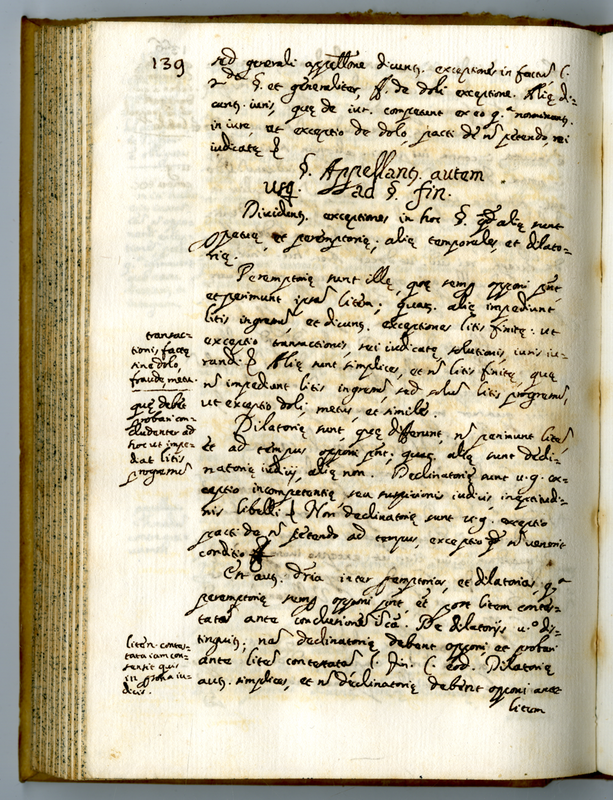 139
sed generali appell.one dicunt.r exceptiones in factũ l.
2 de §. et generaliter, ff. de doli exceptione. Alię di-
cunt.r iuris, quę de iur. competunt ex eo q.a nominant.r
in iure, et exceptio de dolo, pacti de ñ petendo rei
iudicatę
§. Appellant.r autem
usq. ad §. fin.
Dividunt.r exceptiones in hoc §. alię sunt
ppetuę, et peremptorię, alię temporales, et dilato-
rię.
Peremptorię sunt illę, quę semp opponi pñt
et perimunt ipsã litem; quar. alię impediunt
litis ingressũ, et dicunt.r exceptiones litis finitę: ut
exceptio transactionis, rei iudicatę, solutionis, iuris iu-
randi Alię sunt simplices, et ñ litis finitę, quę
ñ impediunt litis ingressũ, sed solũ litis progressũ,
ut exceptio doli, metus, et similes
Dilatorię sunt, quę differunt, ñ perimunt litẽ
et ad tempus opponi pñt, quar. alię sunt decli-
natorię iudicij, alię non. Declinatorię sunt u.g. ex-
ceptio incompetentię seu suspicionis iudicis ineptitudi-
nis libelli Non declinatorię sunt u.g. exceptio
pacti de ñ petendo ad tempus, exceptio ñ venerit
conditio
Est aut. dr̃ia inter pemptorias, et dilatorias, q.a
peremptorię semp opponi pñt, et post litem contes-
tatã ante conclusionẽ De dilatorijs u.o dis-
tinguit.r; nã declinatorię debent opponi, et probari
ante litẽ contestatã l. fin. C. eod. Dilatorię
aut. simplices, et ñ declinatorię debent opponi ante
litem
transac-
tionis factę
sine dolo,
fraude metu.
quę debẽt
probari con-
cludenter ad
hoc ut impe-
diat litis
progressũ
litem contes-
tata iam con-
sensit quis
in psona iu-
dicis.